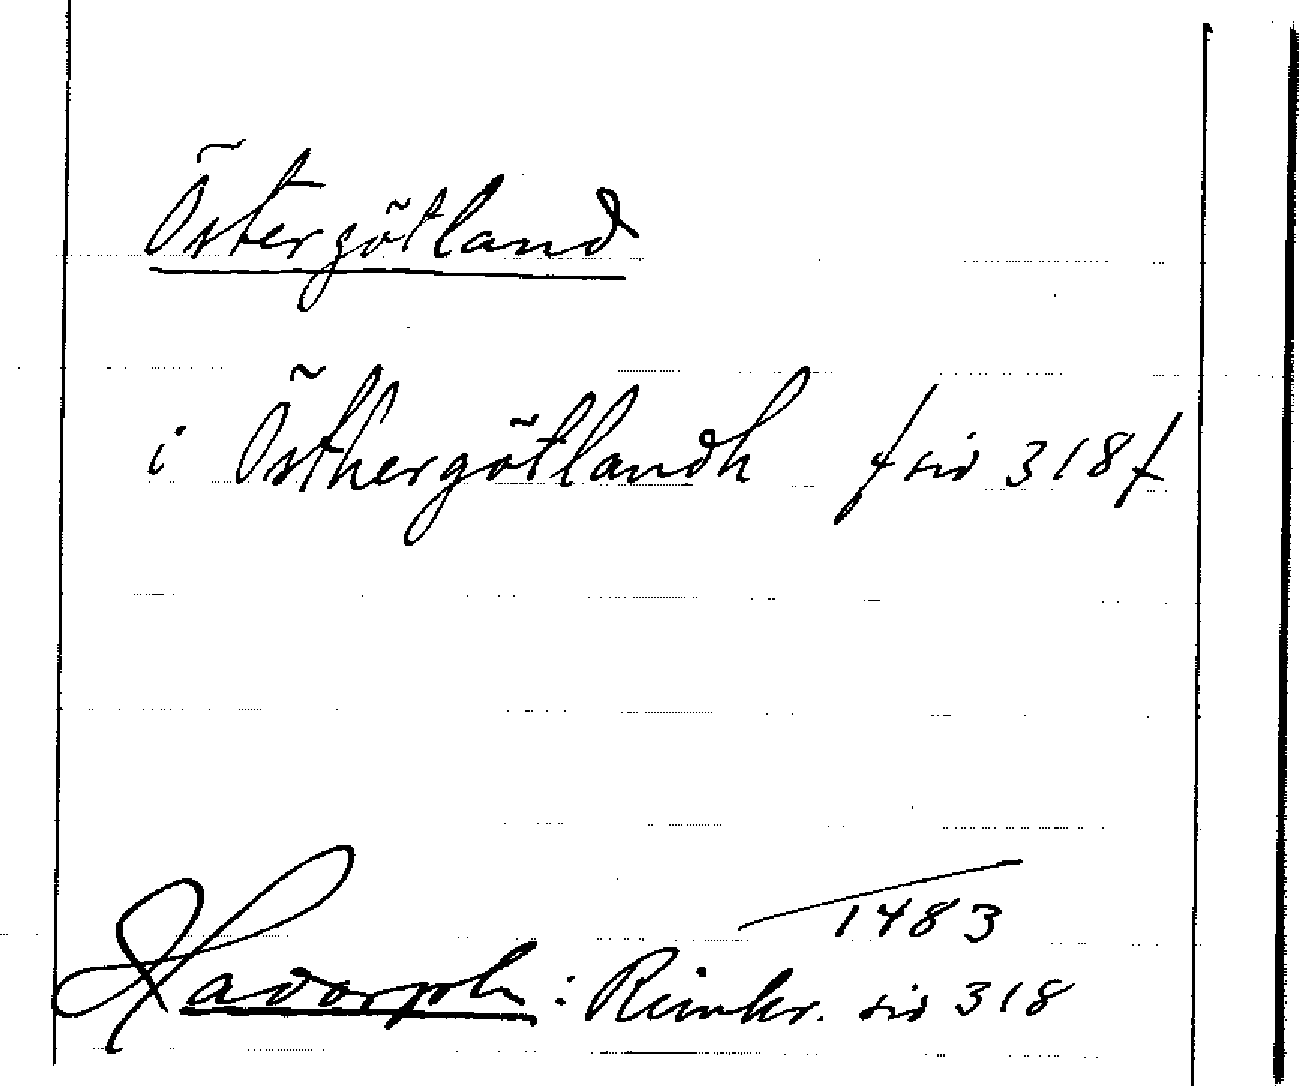 Östergötland
i Östhergötlandh /sid 318/
1483
Hadorph: Rimkr. sid 318